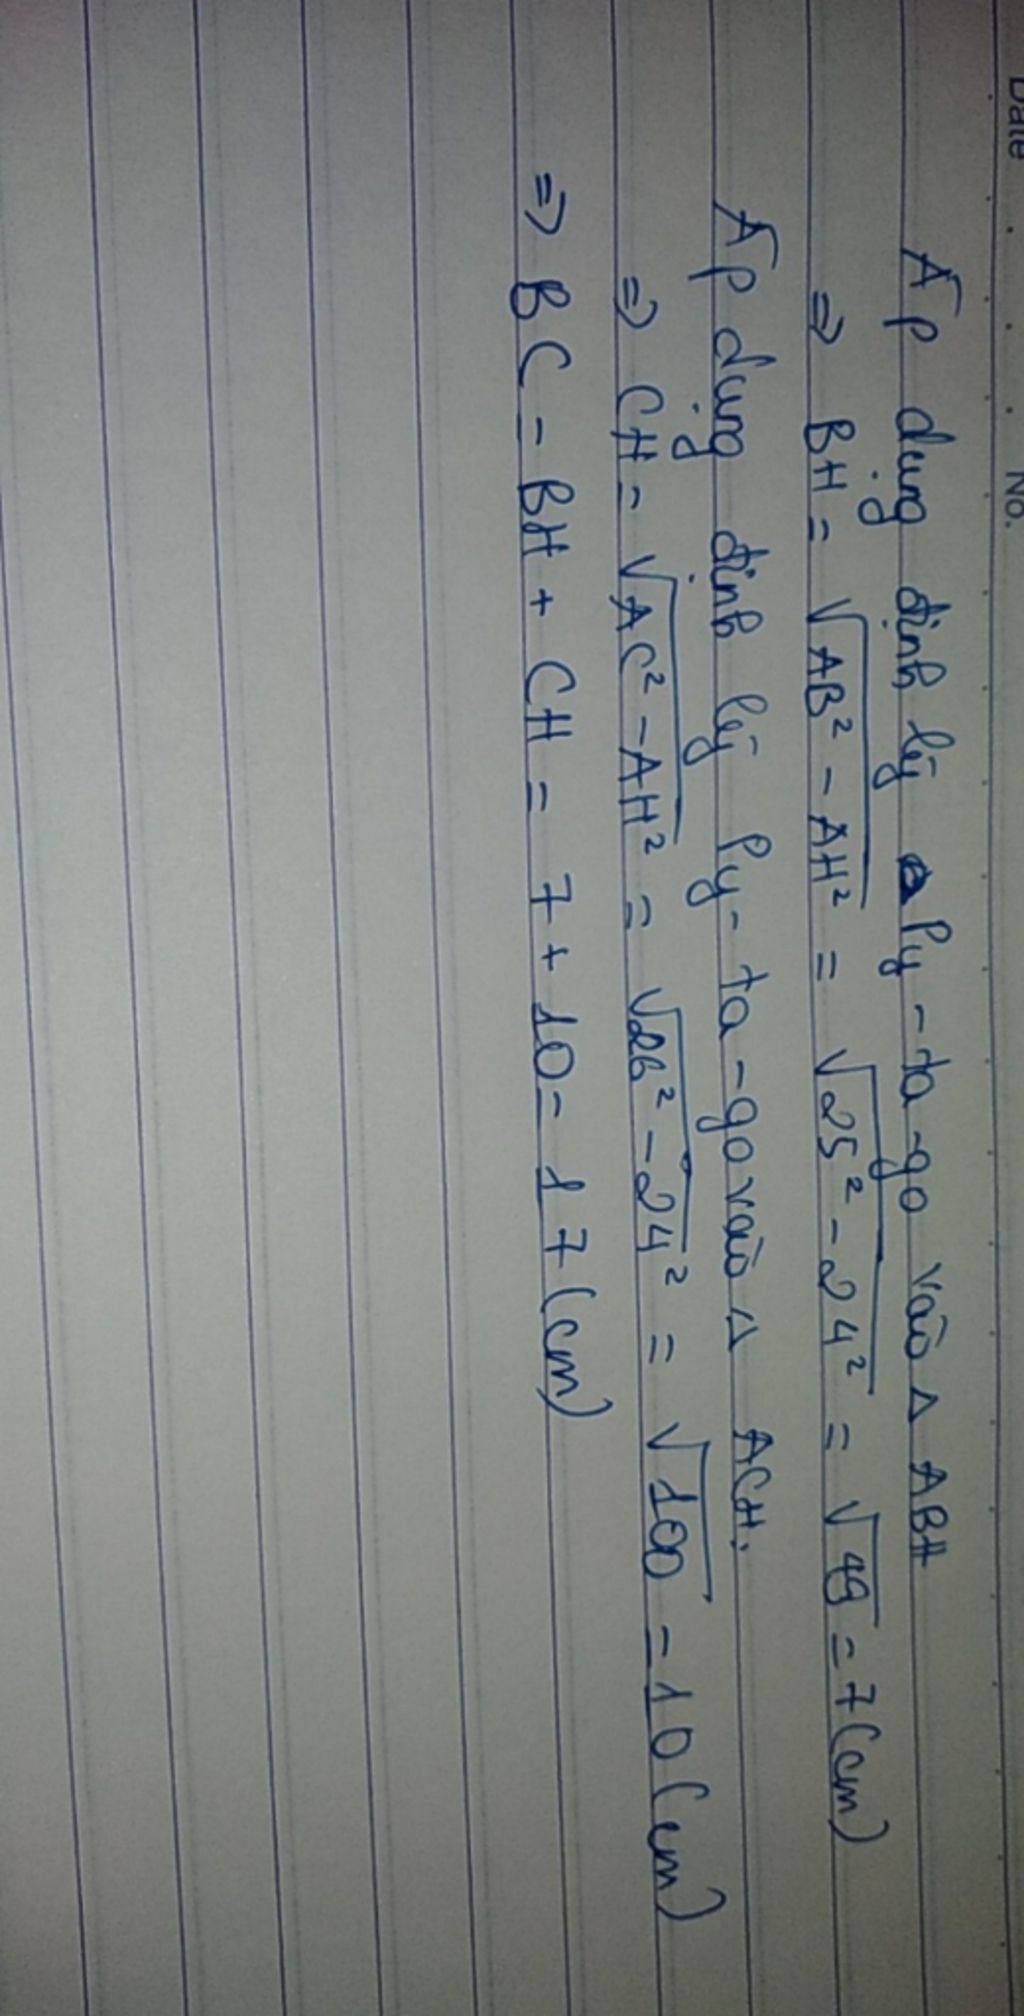 Date No.
Áp dụng định lý Py-ta-go vào Δ ABH
=> BH = √AB² - AH² = √25² - 24² = √49 = 7 (cm)
Áp dụng định lý Py-ta-go vào Δ ACH.
=> CH = √AC² - AH² = √26² - 24² = √100 = 10 (cm)
=> BC = BH + CH = 7 + 10 = 17 (cm)